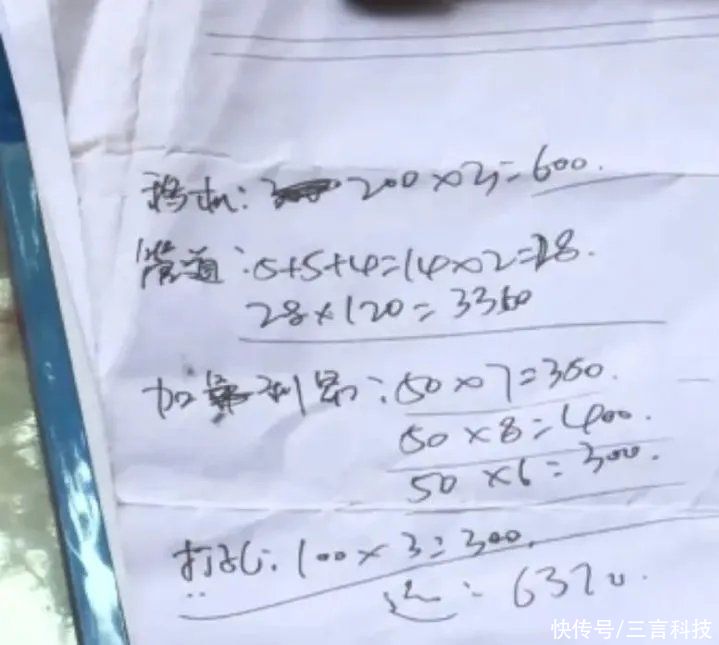 移机: 200×3=600.
管道:5+5+4=14×2=28.
28×120=3360
加制冷:50×7=350.
50×8=400.
50×6=300.
打孔:100×3=300.
: 6370.
快传号/三言科技